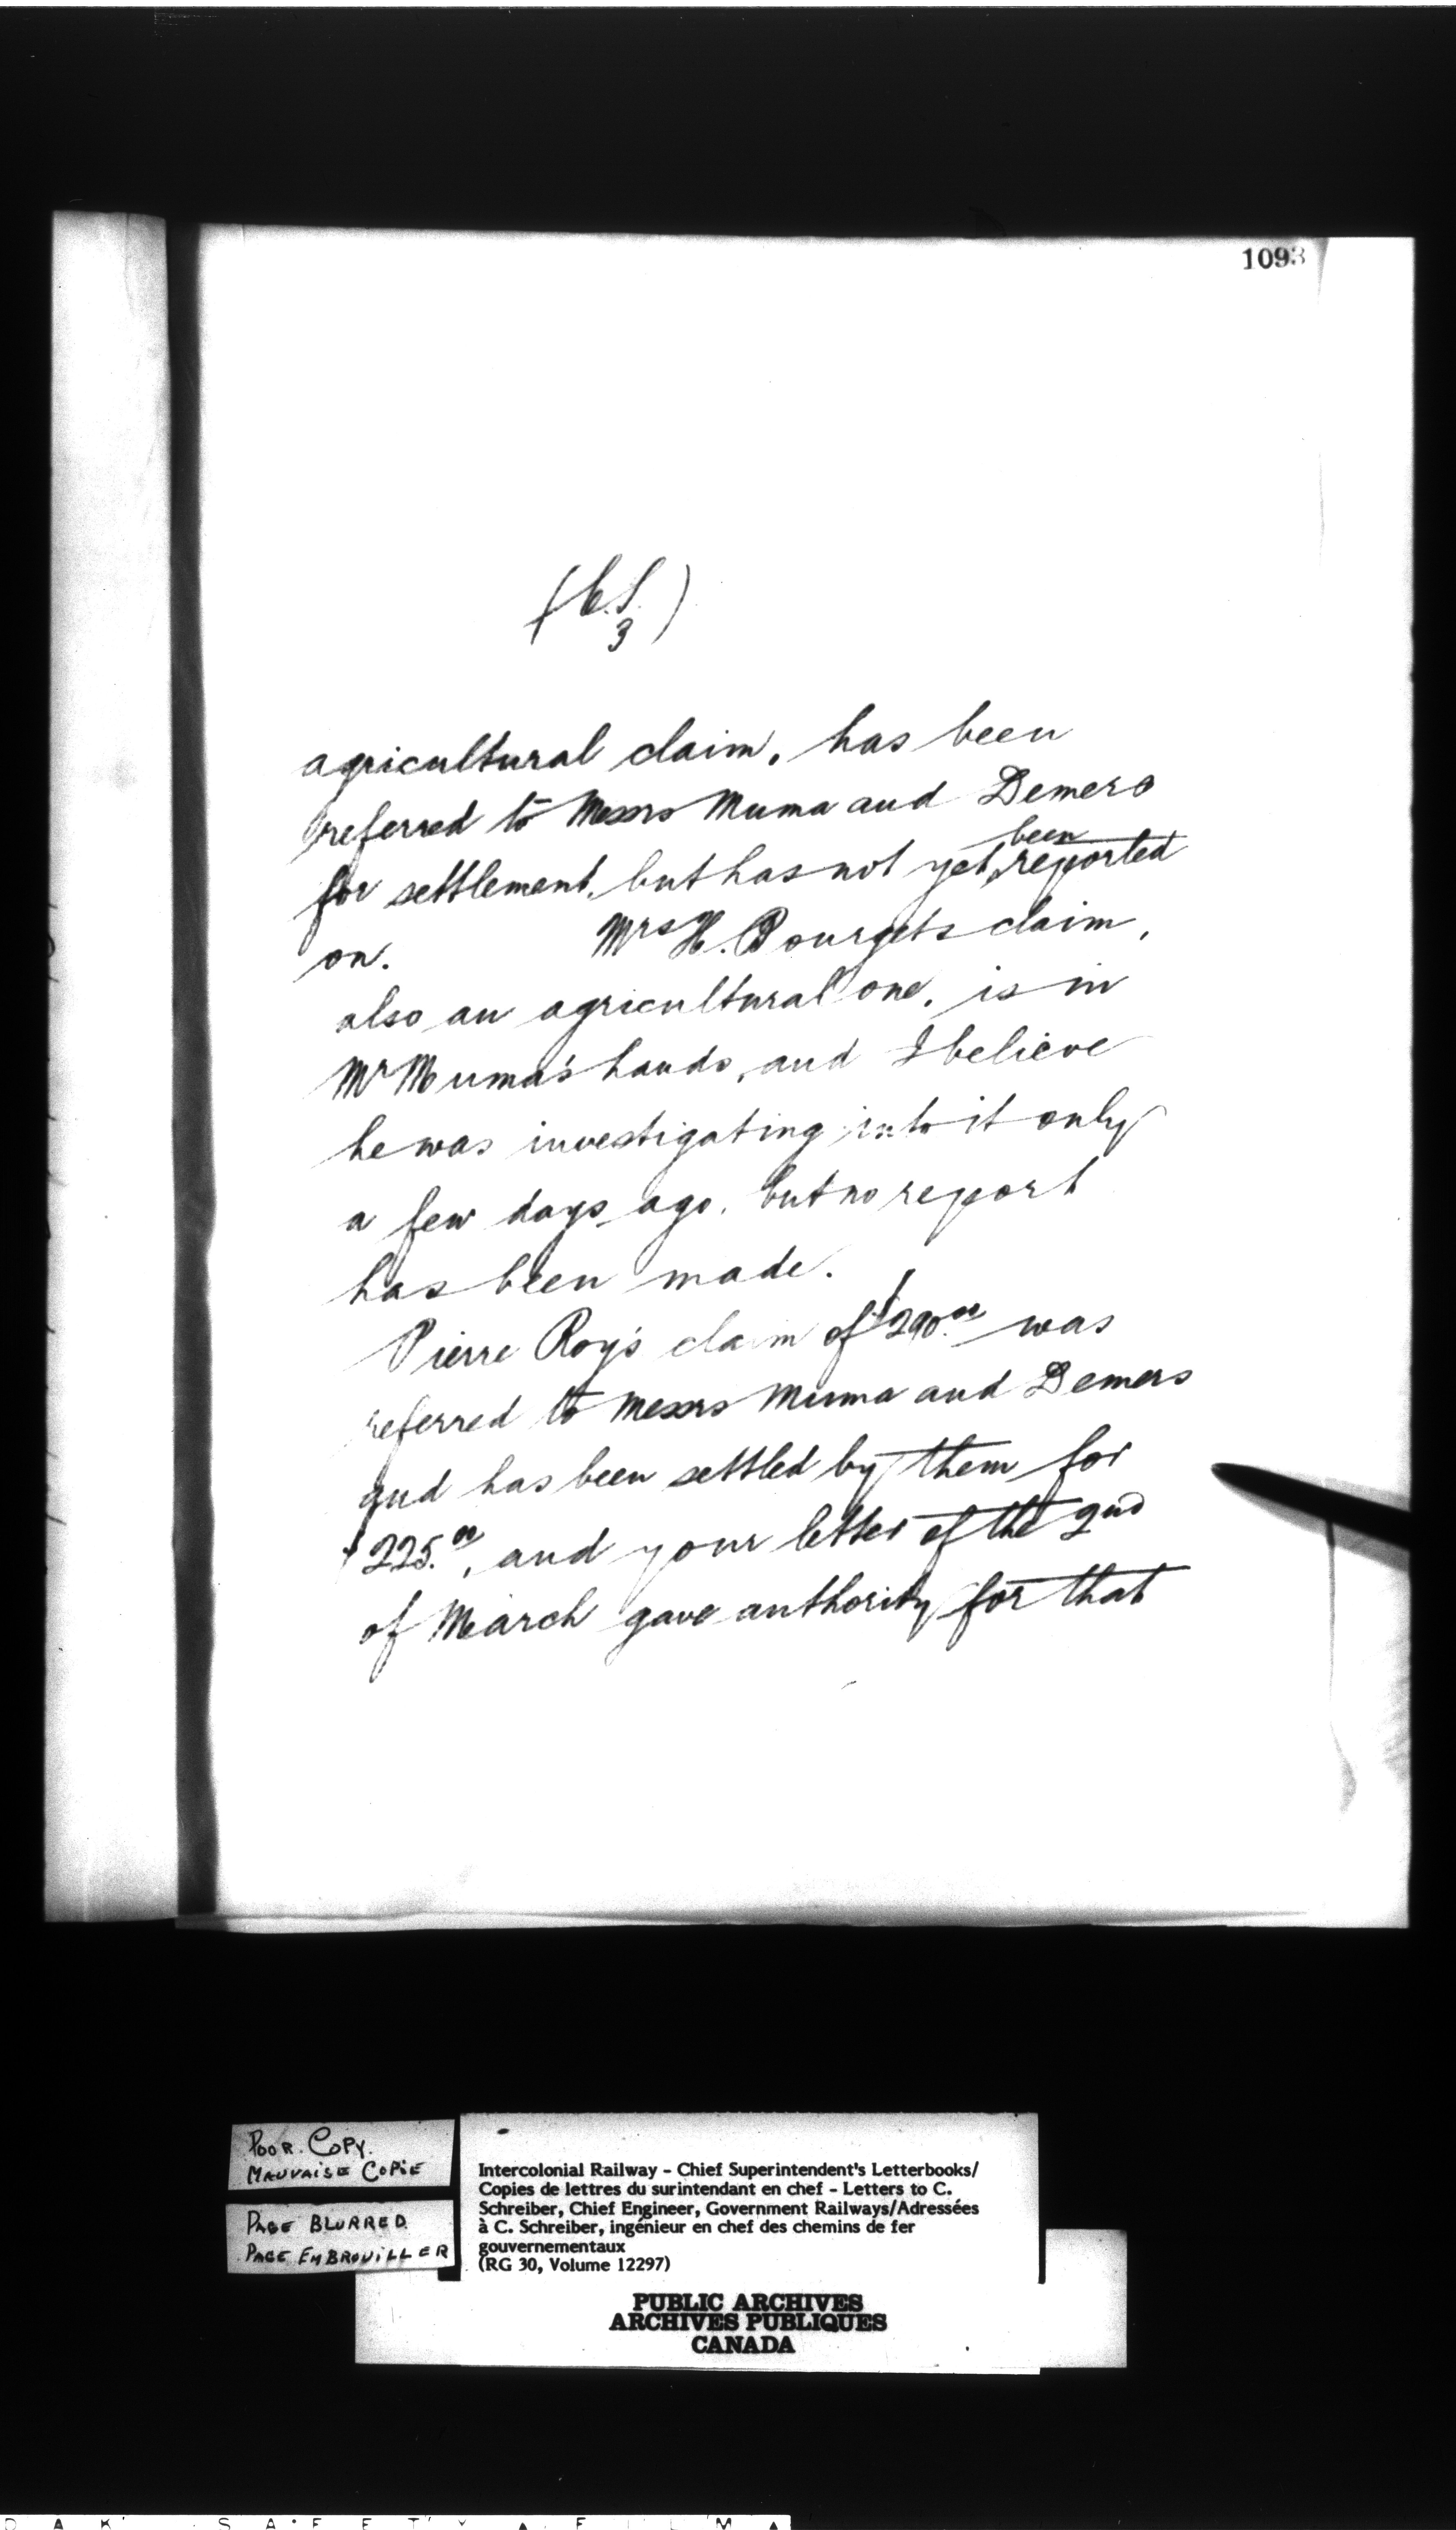 1093
(C.S.
3)
agricultural claim, has been
referred to Messrs Muma and Demers
for settlement, but has not yet been reported
on. Mrs H. Bourgets claim,
also an agricultural one, is in
Mr Muma's hands, and I believe
he was investigating into it only
a few days ago, but no report
has been made.
Pierre Roy's claim of $290.00 was
referred to Messrs Muma and Demers
and has been settled by them for
$225.00, and your letter of the 2nd
of March gave authority for that
POOR. COPY.
MAUVAISE COPIE
PAGE BLURRED
PAGE EMBROUILLER
Intercolonial Railway - Chief Superintendent's Letterbooks/
Copies de lettres du surintendant en chef - Letters to C.
Schreiber, Chief Engineer, Government Railways/Adressées
à C. Schreiber, ingénieur en chef des chemins de fer
gouvernementaux
(RG 30, Volume 12297)
PUBLIC ARCHIVES
ARCHIVES PUBLIQUES
CANADA